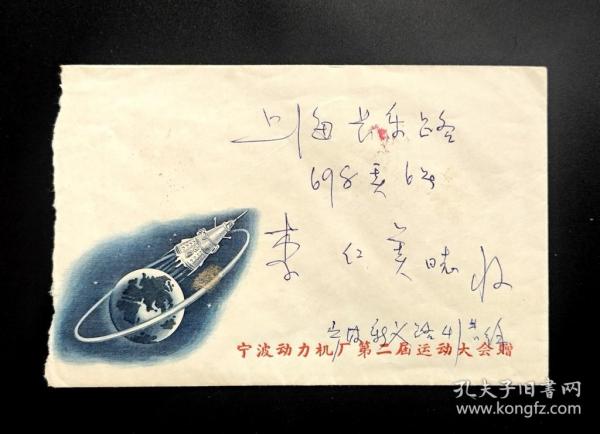 上海长乐路
698弄6号
李仁美同志收
宁波
宁波动力机厂第二届运动大会赠
孔夫子旧书网
www.kongfz.com